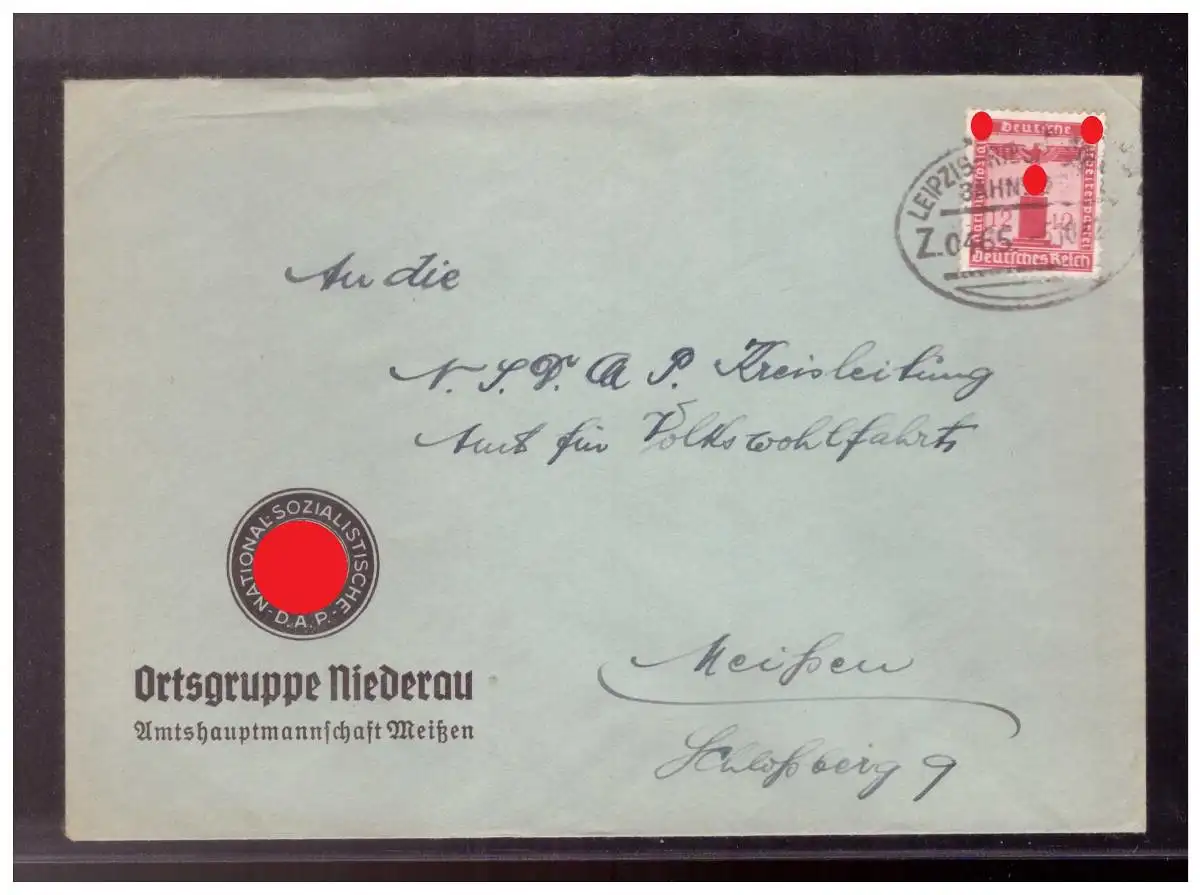 Deutsche
Deutsches Reich
12 12
LEIPZIG-RIES
BAHN
Z.0465
An die
N.S.D.A.P. Kreisleitung
Amt für Volkswohlfahrt
NATIONAL-SOZIALISTISCHE-D.A.P.-
Ortsgruppe Niederau
Amtshauptmannschaft Meißen
Meißen
Schloßberg 9